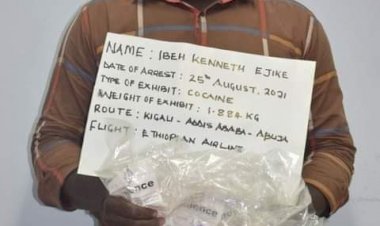 NAME: IBEH KENNETH EJIKE
DATE OF ARREST: 25TH AUGUST, 2021
TYPE OF EXHIBIT: COCAINE
WEIGHT OF EXHIBIT: 1.884 KG
ROUTE: KIGALI - ADDIS ABABA - ABUJA
FLIGHT: ETHIOPIAN AIRLINE